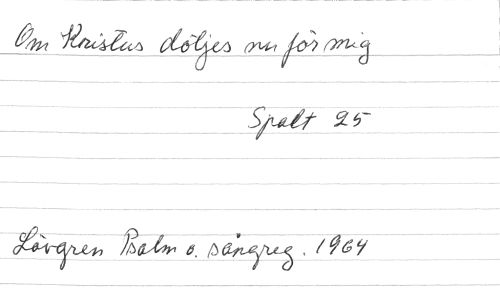 Om Kristus döljes nu för mig
Spalt 25
Lövgren Psalm o. sångreg. 1964